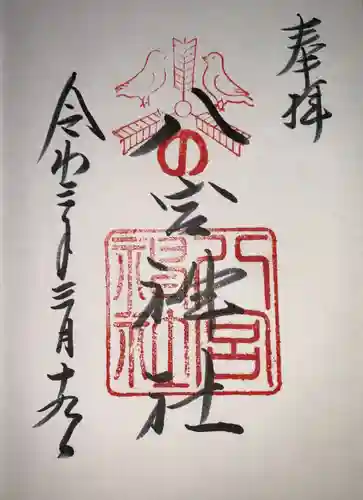 奉拝
八の宮神社
八宮神社
令和三年三月十九日